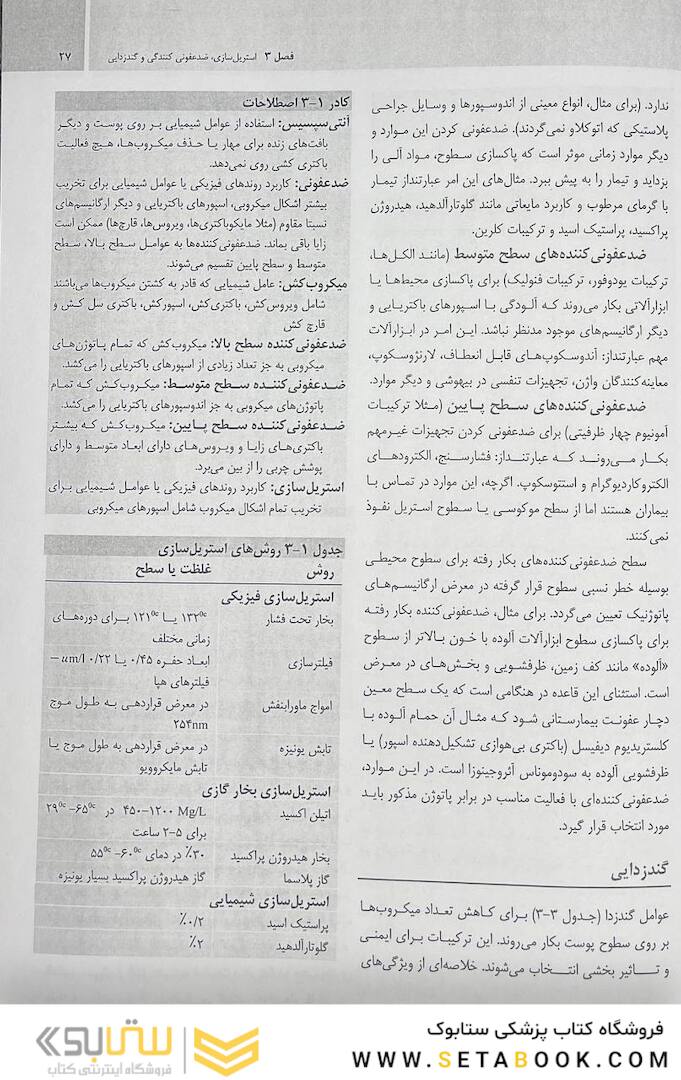 فصل ۳ استریل‌سازی، ضدعفونی کنندگی و گندزدایی ۲۷
ندارد. (برای مثال، انواع معینی از اندوسپورها و وسایل جراحی
پلاستیکی که اتوکلاو نمی‌گردند). ضدعفونی کردن این موارد و
دیگر موارد زمانی موثر است که پاکسازی سطوح، مواد آلی را
بزداید و تیمار را به پیش ببرد. مثال‌های این امر عبارتنداز تیمار
با گرمای مرطوب و کاربرد مایعاتی مانند گلوتارآلدهید، هیدروژن
پراکسید، پراستیک اسید و ترکیبات کلرین.
ضدعفونی‌کننده‌های سطح متوسط (مانند الکل‌ها،
ترکیبات یودوفور، ترکیبات فنولیک) برای پاکسازی محیط‌ها یا
ابزارآلاتی بکار می‌روند که آلودگی با اسپورهای باکتریایی و
دیگر ارگانیسم‌های موجود مدنظر نباشد. این امر در ابزارآلات
مهم عبارتنداز: آندوسکوپ‌های قابل انعطاف، لارنژوسکوپ،
معاینه‌کنندگان واژن، تجهیزات تنفسی در بیهوشی و دیگر موارد.
ضدعفونی‌کننده‌های سطح پایین (مثلا ترکیبات
آمونیوم چهار ظرفیتی) برای ضدعفونی کردن تجهیزات غیرمهم
بکار می‌روند که عبارتنداز: فشارسنج، الکترودهای
الکتروکاردیوگرام و استتوسکوپ. اگرچه، این موارد در تماس با
بیماران هستند اما از سطح موکوسی یا سطوح استریل نفوذ
نمی‌کنند.
سطح ضدعفونی‌کننده‌های بکار رفته برای سطوح محیطی
بوسیله خطر نسبی سطوح قرار گرفته در معرض ارگانیسم‌های
پاتوژنیک تعیین می‌گردد. برای مثال، ضدعفونی‌کننده بکار رفته
برای پاکسازی سطوح ابزارآلات آلوده با خون بالاتر از سطوح
«آلوده» مانند کف زمین، ظرفشویی و بخش‌های در معرض
است. استثنای این قاعده در هنگامی است که یک سطح معین
دچار عفونت بیمارستانی شود که مثال آن حمام آلوده با
کلستریدیوم دیفیسل (باکتری بی‌هوازی تشکیل‌دهنده اسپور) یا
ظرفشویی آلوده به سودوموناس آئروجینوزا است. در این موارد،
ضدعفونی‌کننده‌ای با فعالیت مناسب در برابر پاتوژن مذکور باید
مورد انتخاب قرار گیرد.
گندزدایی
عوامل گندزدا (جدول ۳-۳) برای کاهش تعداد میکروب‌ها
بر روی سطوح پوست بکار می‌روند. این ترکیبات برای ایمنی
و تاثیر بخشی انتخاب می‌شوند. خلاصه‌ای از ویژگی‌های
کادر ۱-۳ اصطلاحات
آنتی‌سپسیس: استفاده از عوامل شیمیایی بر روی پوست و دیگر
بافت‌های زنده برای مهار یا حذف میکروب‌ها، هیچ فعالیت
باکتری کشی روی نمی‌دهد.
ضدعفونی: کاربرد روندهای فیزیکی یا عوامل شیمیایی برای تخریب
بیشتر اشکال میکروبی، اسپورهای باکتریایی و دیگر ارگانیسم‌های
نسبتا مقاوم (مثلا مایکوباکتری‌ها، ویروس‌ها، قارچ‌ها) ممکن است
زایا باقی بماند. ضدعفونی‌کننده‌ها به عوامل سطح بالا، سطح
متوسط و سطح پایین تقسیم می‌شوند.
میکروب‌کش: عامل شیمیایی که قادر به کشتن میکروب‌ها می‌باشند
شامل ویروس‌کش، باکتری‌کش، اسپورکش، باکتری سل کش و
قارچ کش
ضدعفونی‌کننده سطح بالا: میکروب‌کش که تمام پاتوژن‌های
میکروبی به جز تعداد زیادی از اسپورهای باکتریایی را می‌کشد.
ضدعفونی‌کننده سطح متوسط: میکروب‌کش که تمام
پاتوژن‌های میکروبی به جز اندوسپورهای باکتریایی را می‌کشد.
ضدعفونی‌کننده سطح پایین: میکروب‌کش که بیشتر
باکتری‌های زایا و ویروس‌های دارای ابعاد متوسط و دارای
پوشش چربی را از بین می‌برد.
استریل‌سازی: کاربرد روندهای فیزیکی یا عوامل شیمیایی برای
تخریب تمام اشکال میکروب شامل اسپورهای میکروبی
جدول ۱-۳ روش‌های استریل‌سازی
روش غلظت یا سطح
استریل‌سازی فیزیکی
بخار تحت فشار ۱۳۲⁰ᶜ یا ۱۲۱⁰ᶜ برای دوره‌های
زمانی مختلف
فیلترسازی ابعاد حفره ۰/۴۵ یا ۰/۲۲ um/l –
فیلترهای هپا
امواج ماورابنفش در معرض قراردهی به طول موج
۲۵۴nm
تابش یونیزه در معرض قراردهی به طول موج یا
تابش مایکروویو
استریل‌سازی بخار گازی
اتیلن اکسید ۴۵۰-۱۲۰۰ Mg/L در ۲۹⁰ᶜ-۶۵⁰ᶜ
برای ۵-۲ ساعت
بخار هیدروژن پراکسید ۳۰٪ در دمای ۵۵⁰ᶜ-۶۰⁰ᶜ
گاز پلاسما گاز هیدروژن پراکسید بسیار یونیزه
استریل‌سازی شیمیایی
پراستیک اسید ۰/۲٪
گلوتارآلدهید ۲٪
فروشگاه کتاب پزشکی ستابوک
WWW.SETABOOK.COM
ستابوک
فروشگاه اینترنتی کتاب